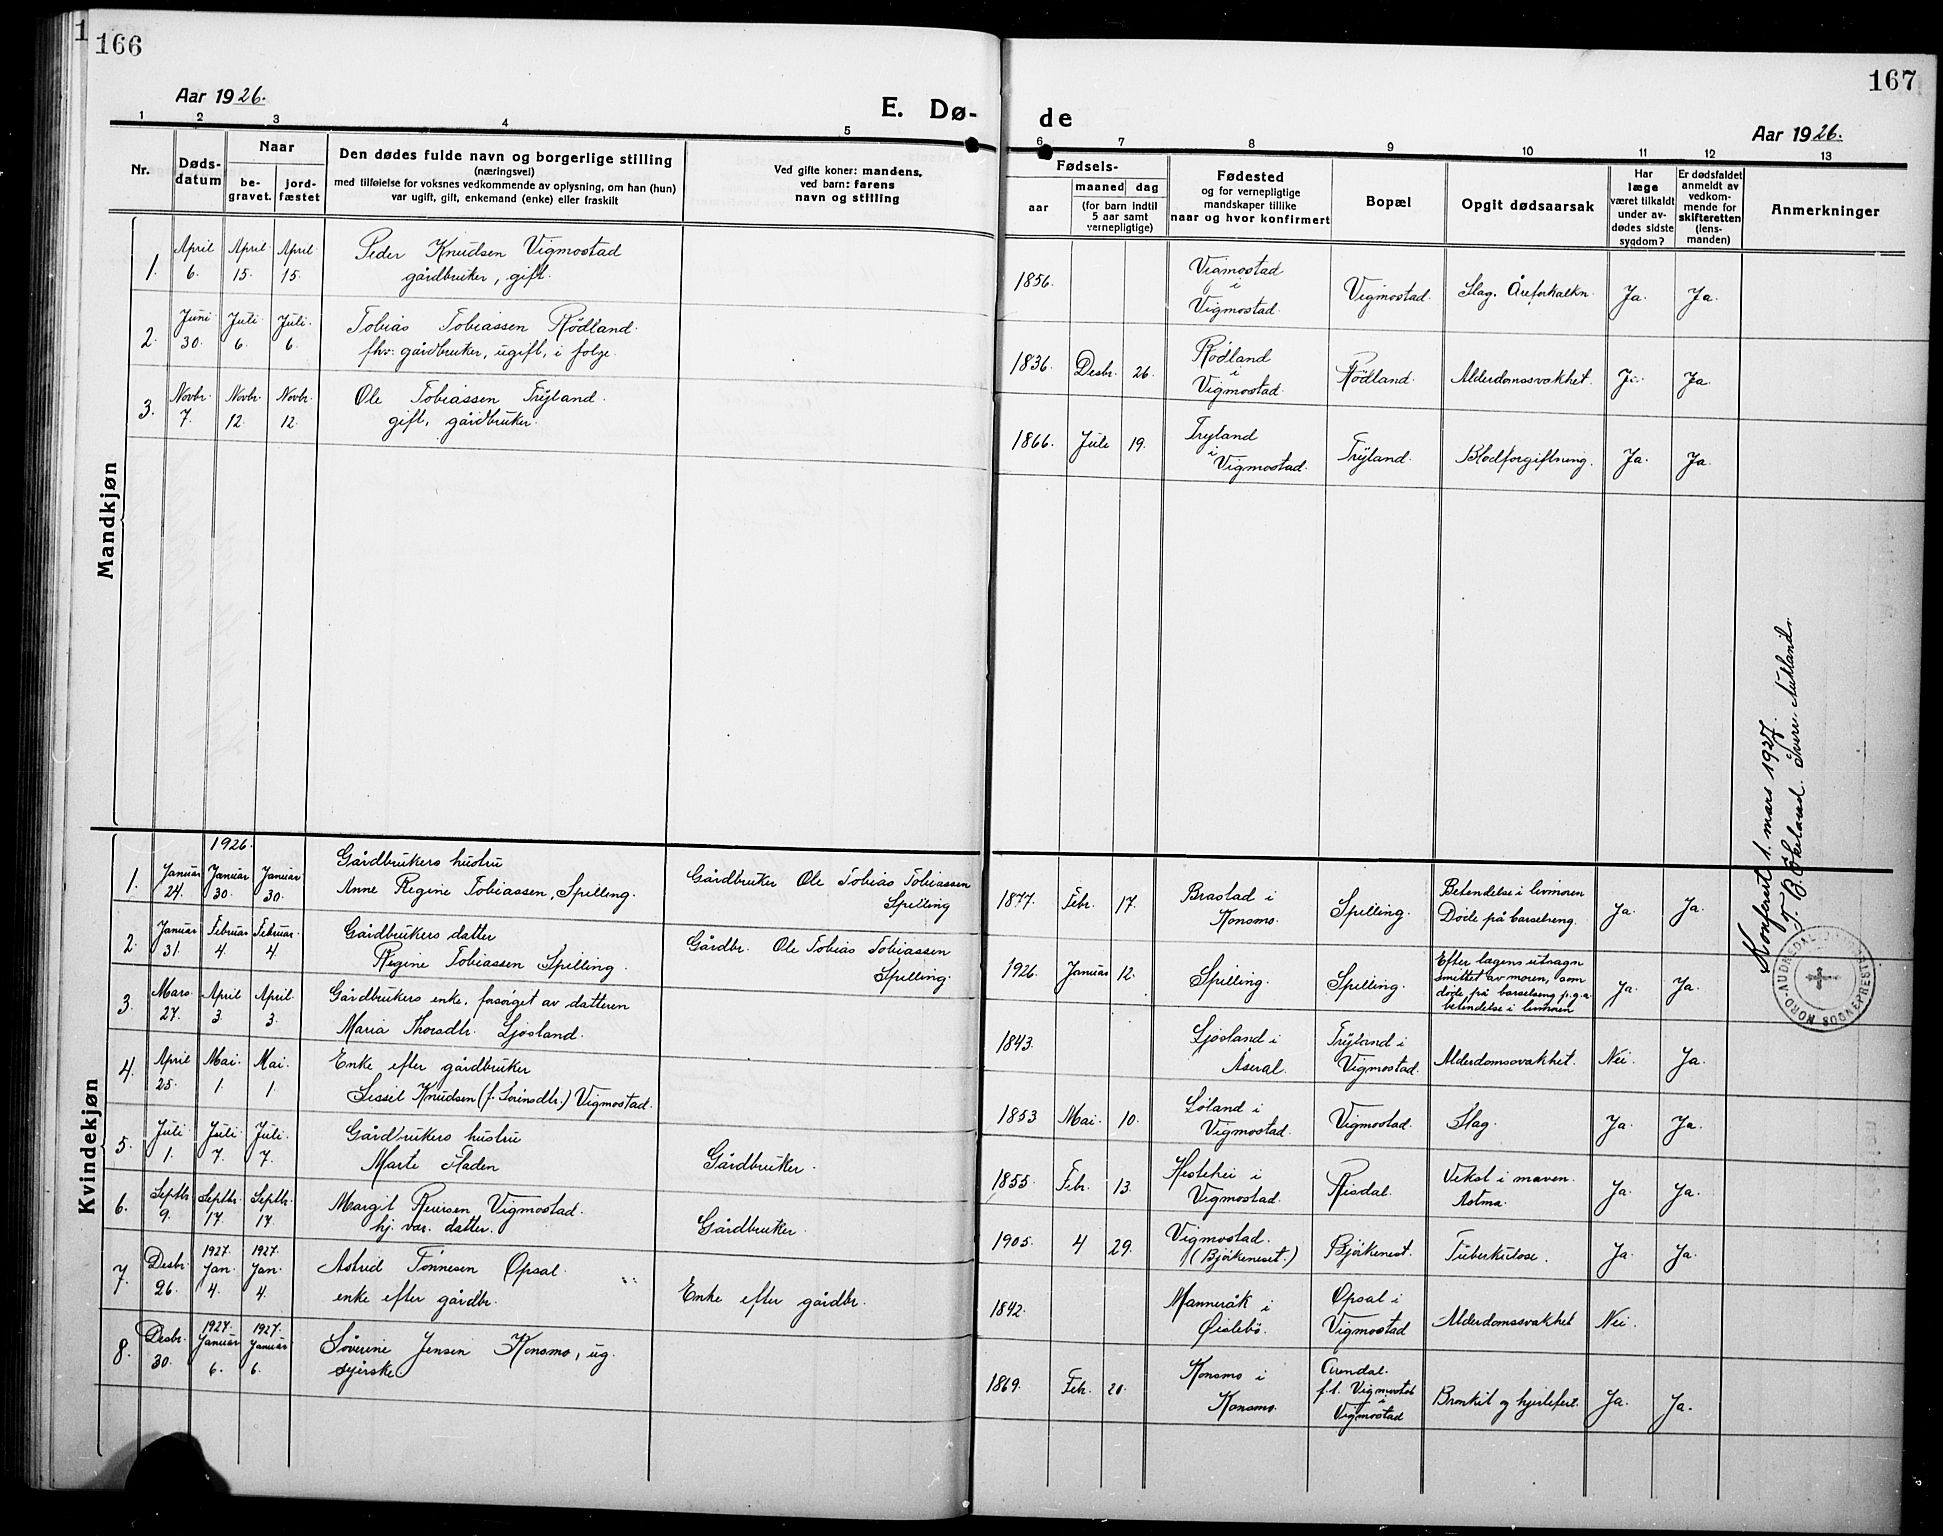 166
Aar 1926.
E. Dø-
1 2 3 4 5
Nr.
Døds-
datum
Naar
be-
gravet.
jord-
fæstet
Den dødes fulde navn og borgerlige stilling
(næringsvei)
med tilføielse for voksnes vedkommende av oplysning, om han (hun)
var ugift, gift, enkemand (enke) eller fraskilt
Ved gifte koner: mandens,
ved barn: farens
navn og stilling
Mandkjøn
1. April 6. April 15. April 15. Peder Knudsen Vigmostad
gårdbruker, gift.
2. Juni 30. Juli 6. Juli 6. Tobias Tobiassen Rödland.
fhv: gårdbruker, ugift, i følge.
3. Novbr. 7. Novbr. 12. Novbr. 12. Ole Tobiassen Tryland.
gift, gårdbruker.
Kvindekjøn
1926.
1. Januar 24. Januar 30. Januar 30. Gårdbrukers hustru
Anne Regine Tobiassen, Spilling. Gårdbruker Ole Tobias Tobiassen
Spilling
2. Januar 31. Februar 4. Februar 4. Gårdbrukers datter
Regine Tobiassen Spilling. Gårdbr. Ole Tobias Tobiassen
Spilling
3. Mars 27. April 3. April 3. Gårdbrukers enke, forsörget av datteren
Maria Thorsdtr. Ljosland.
4. April 25. Mai 1. Mai 1. Enke efter gårdbruker
Sissel Knudsen (f. Sörinsdtr.) Vigmostad.
5. Juli 1. Juli 7. Juli 7. Gårdbrukers hustru
Marte Staden Gårdbruker.
6. Septbr. 9. Septbr. 17. Septbr. 17. Margit Reiersen Vigmostad.
hj. vær. datter. Gårdbruker
7. Desbr. 26. 1927. Jan. 4. 1927. Jan. 4. Astrid Tønnesen Opsal.
enke efter gårdbr. Enke efter gårdbr.
8. Desbr. 30. 1927. Januar 6. 1927. Januar 6. Söverine Jensen Konsmo, ug.
syerske
167
de
Aar 1926.
6 7 8 9 10 11 12 13
Fødsels-
aar
maaned dag
(for barn indtil
5 aar samt
vernepligtige)
Fødested
og for vernepligtige
mandskaper tillike
naar og hvor konfirmert
Bopæl
Opgit dødsaarsak
Har
læge
været tilkaldt
under av-
dødes sidste
sygdom?
Er dødsfaldet
anmeldt av
vedkom-
mende for
skifteretten
(lens-
manden)
Anmerkninger
1856. Vigmostad i Vigmostad. Vigmostad. Slag. Åreforkalkn. Ja. Ja.
1836. Desbr. 26. Rödland i Vigmostad. Rödland. Alderdomssvakhet. Ja. Ja.
1866. Juli 19. Tryland i Vigmostad. Tryland. Blodforgiftning. Ja. Ja.
1877. Febr. 17. Brastad i Konsmo. Spilling. Betendelse i livmoren
Döde på barselseng. Ja. Ja.
1926. Januar 12. Spilling. Spilling. Efter lægens utsagn
smittet av moren, som
döde på barselseng p.g.a.
betendelse i livmoren Ja. Ja.
1843. Ljosland i Åseral. Tryland i Vigmostad. Alderdomssvakhet. Nei. Ja.
1853 Mai. 10. Löland i Vigmostad. Vigmostad. Slag. Ja. Ja.
1855. Febr. 13. Hestehei i Vigmostad. Risdal. Vekst i maven.
Astma. Ja. Ja.
1905. 4 29. Vigmostad.
(Bjørkeneset.) Bjørkenest. Tuberkulose. Ja. Ja.
1842. Manneråk i Øislebø. Opsal i Vigmostad Alderdomssvakhet Nei.
1869. Febr. 20. Konsmo i Konsmo. Arendal.
f.t. Vigmostad
i
Vigmostad Bronkit og hjertefeil. Ja. Ja.
Konferert 1. mars 1927.
J. B. Økeland. Sverre Aukland.
NORD-AUDNEDAL SOGNEPRESTS